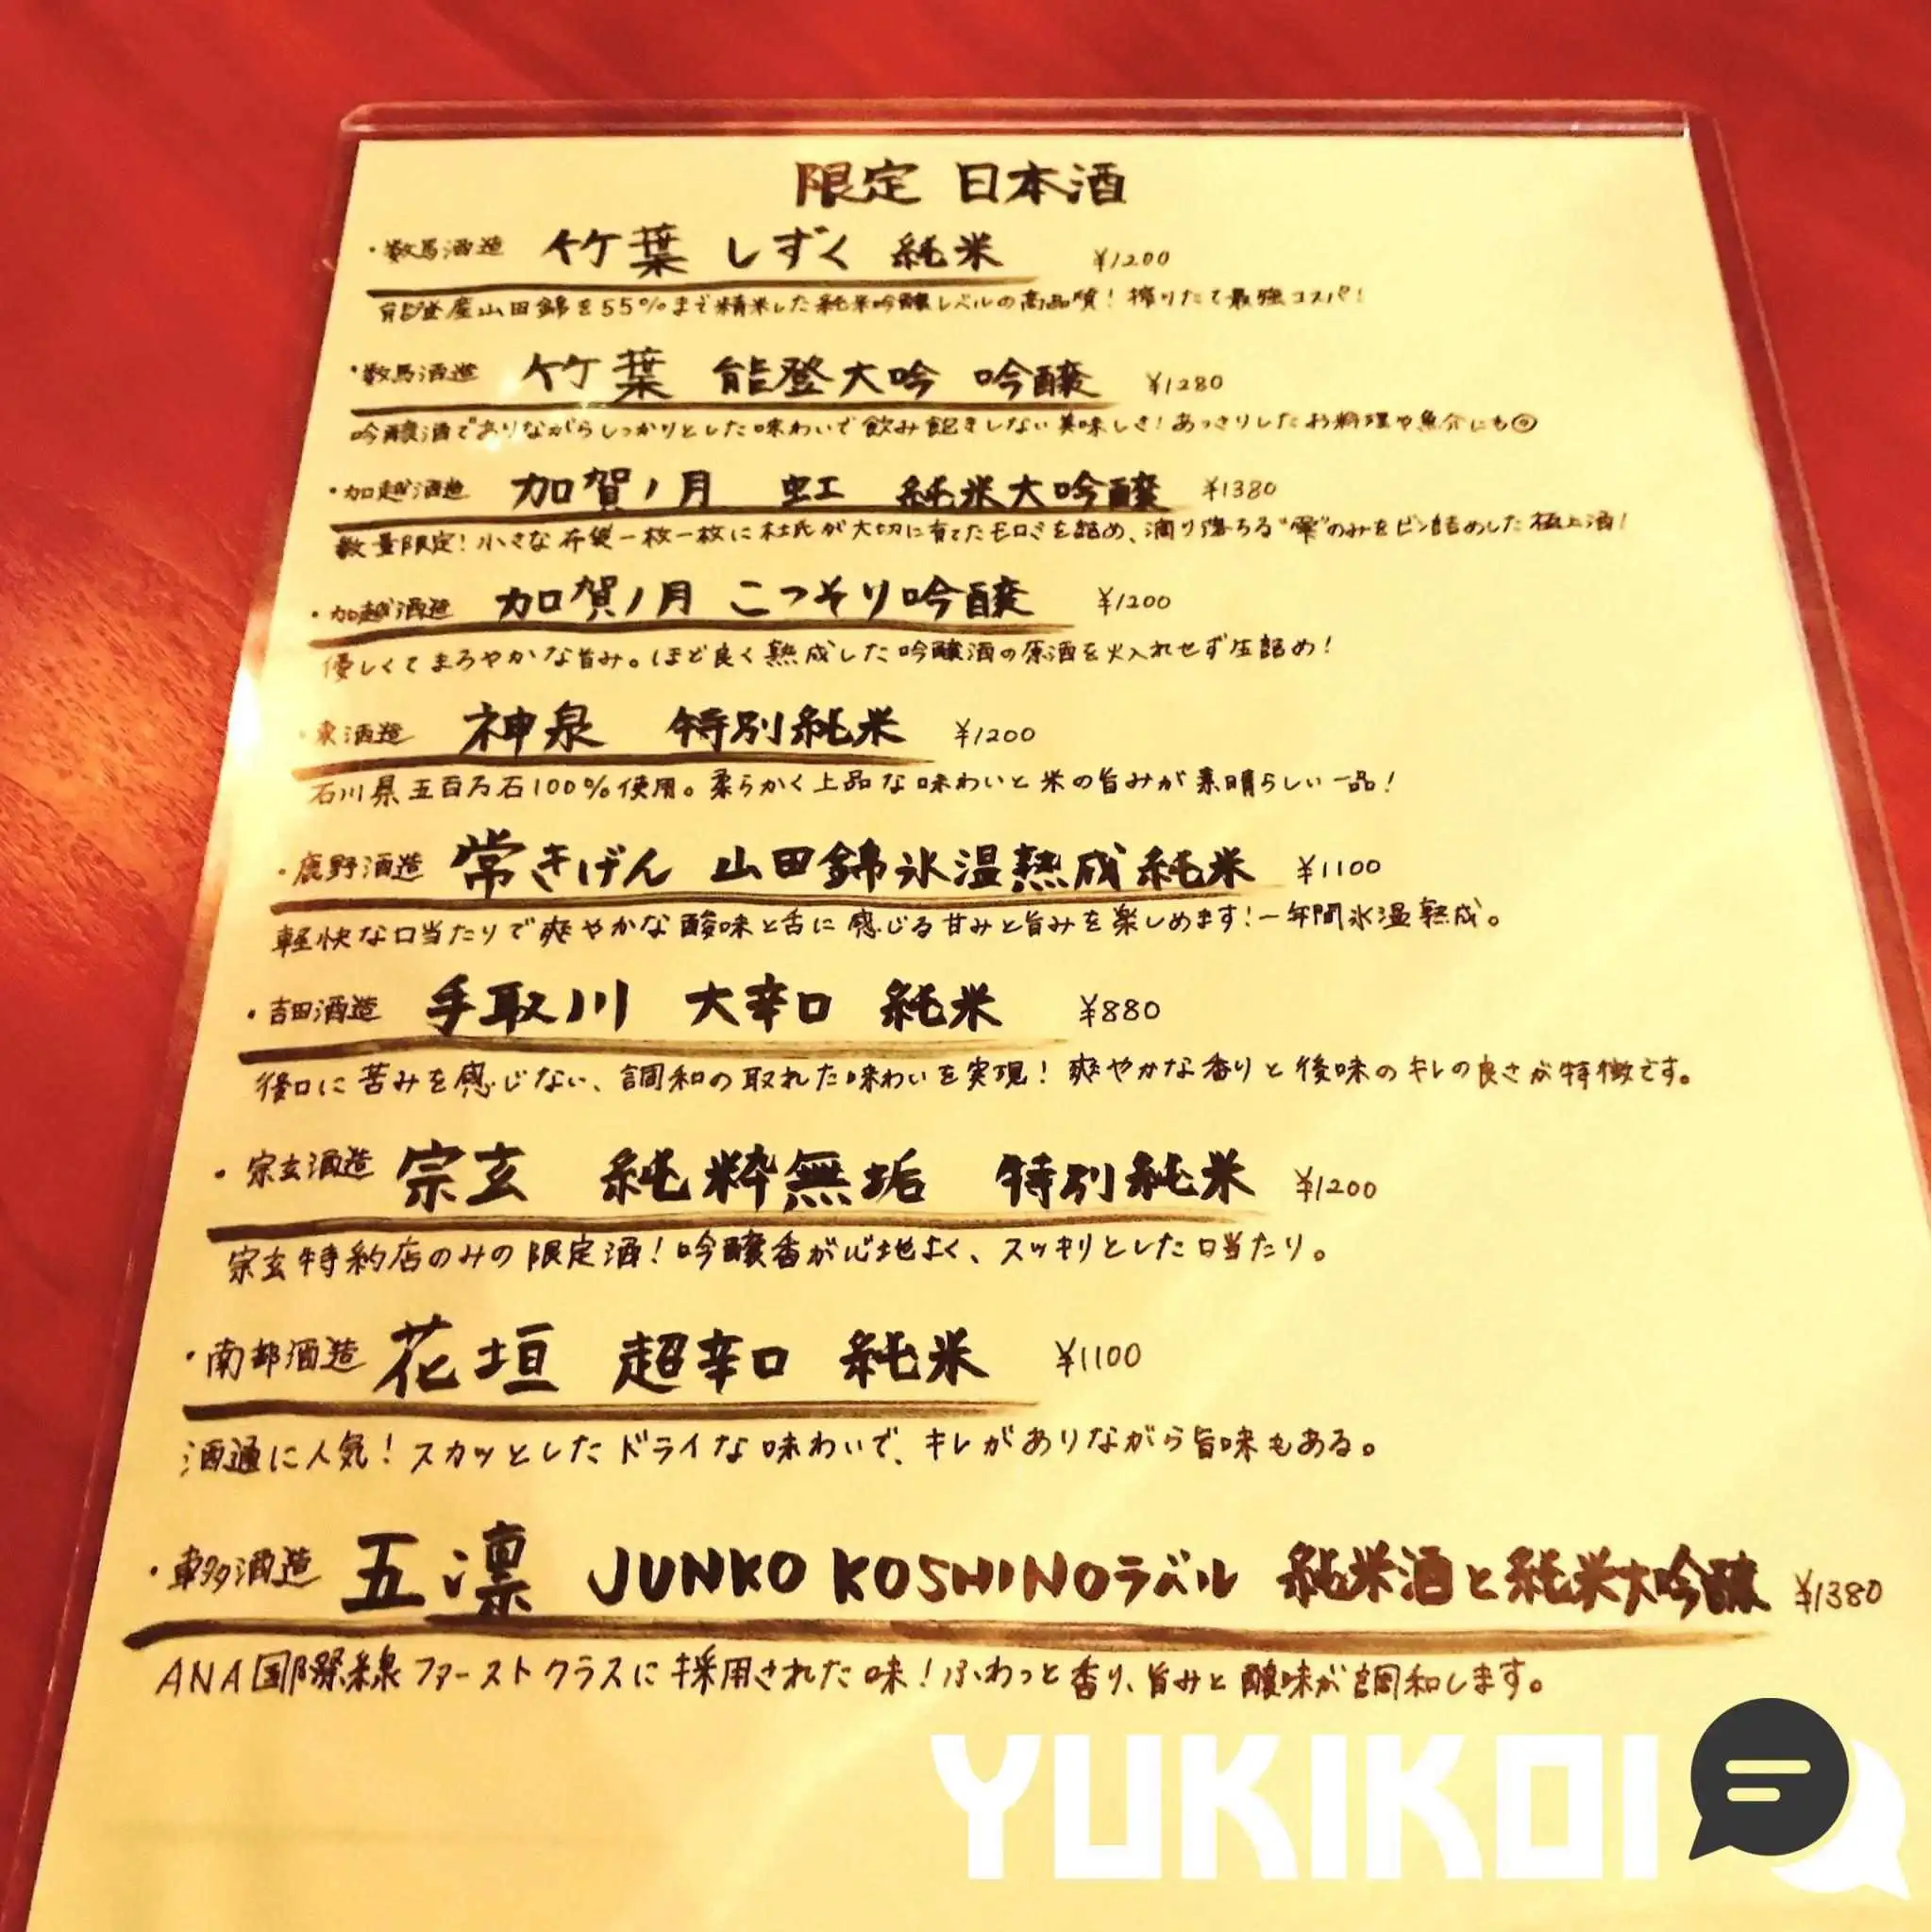 限定 日本酒
・数馬酒造 竹葉 しずく 純米 ¥1200
能登産山田錦を55%まで精米した純米吟醸レベルの高品質！搾りたて最強コスパ！
・数馬酒造 竹葉 能登大吟 吟醸 ¥1280
吟醸酒でありながらしっかりとした味わいで飲み飽きしない美味しさ！あっさりしたお料理や魚介にも◎
・加越酒造 加賀ノ月 虹 純米大吟醸 ¥1380
数量限定！小さな布袋一枚一枚に杜氏が大切に育てたモロミを詰め、滴り落ちる"雫"のみをビン詰めした極上酒！
・加越酒造 加賀ノ月 こっそり吟醸 ¥1200
優しくてまろやかな旨み。ほど良く熟成した吟醸酒の原酒を火入れせず生詰め！
・東酒造 神泉 特別純米 ¥1200
石川県五百万石100%使用。柔らかく上品な味わいと米の旨みが素晴らしい一品！
・鹿野酒造 常きげん 山田錦氷温熟成純米 ¥1100
軽快な口当たりで爽やかな酸味と舌に感じる甘みと旨みを楽しめます！一年間氷温熟成。
・吉田酒造 手取川 大辛口 純米 ¥880
後口に苦みを感じない、調和の取れた味わいを実現！爽やかな香りと後味のキレの良さが特徴です。
・宗玄酒造 宗玄 純粋無垢 特別純米 ¥1200
宗玄特約店のみの限定酒！吟醸香が心地よく、スッキリとした口当たり。
・南部酒造 花垣 超辛口 純米 ¥1100
酒通に人気！スカッとしたドライな味わいで、キレがありながら旨味もある。
・車多酒造 五凛 JUNKO KOSHINOラベル 純米酒と純米大吟醸 ¥1380
ANA国際線ファーストクラスに採用された味！ふわっと香り、旨みと酸味が調和します。
YUKIKOI